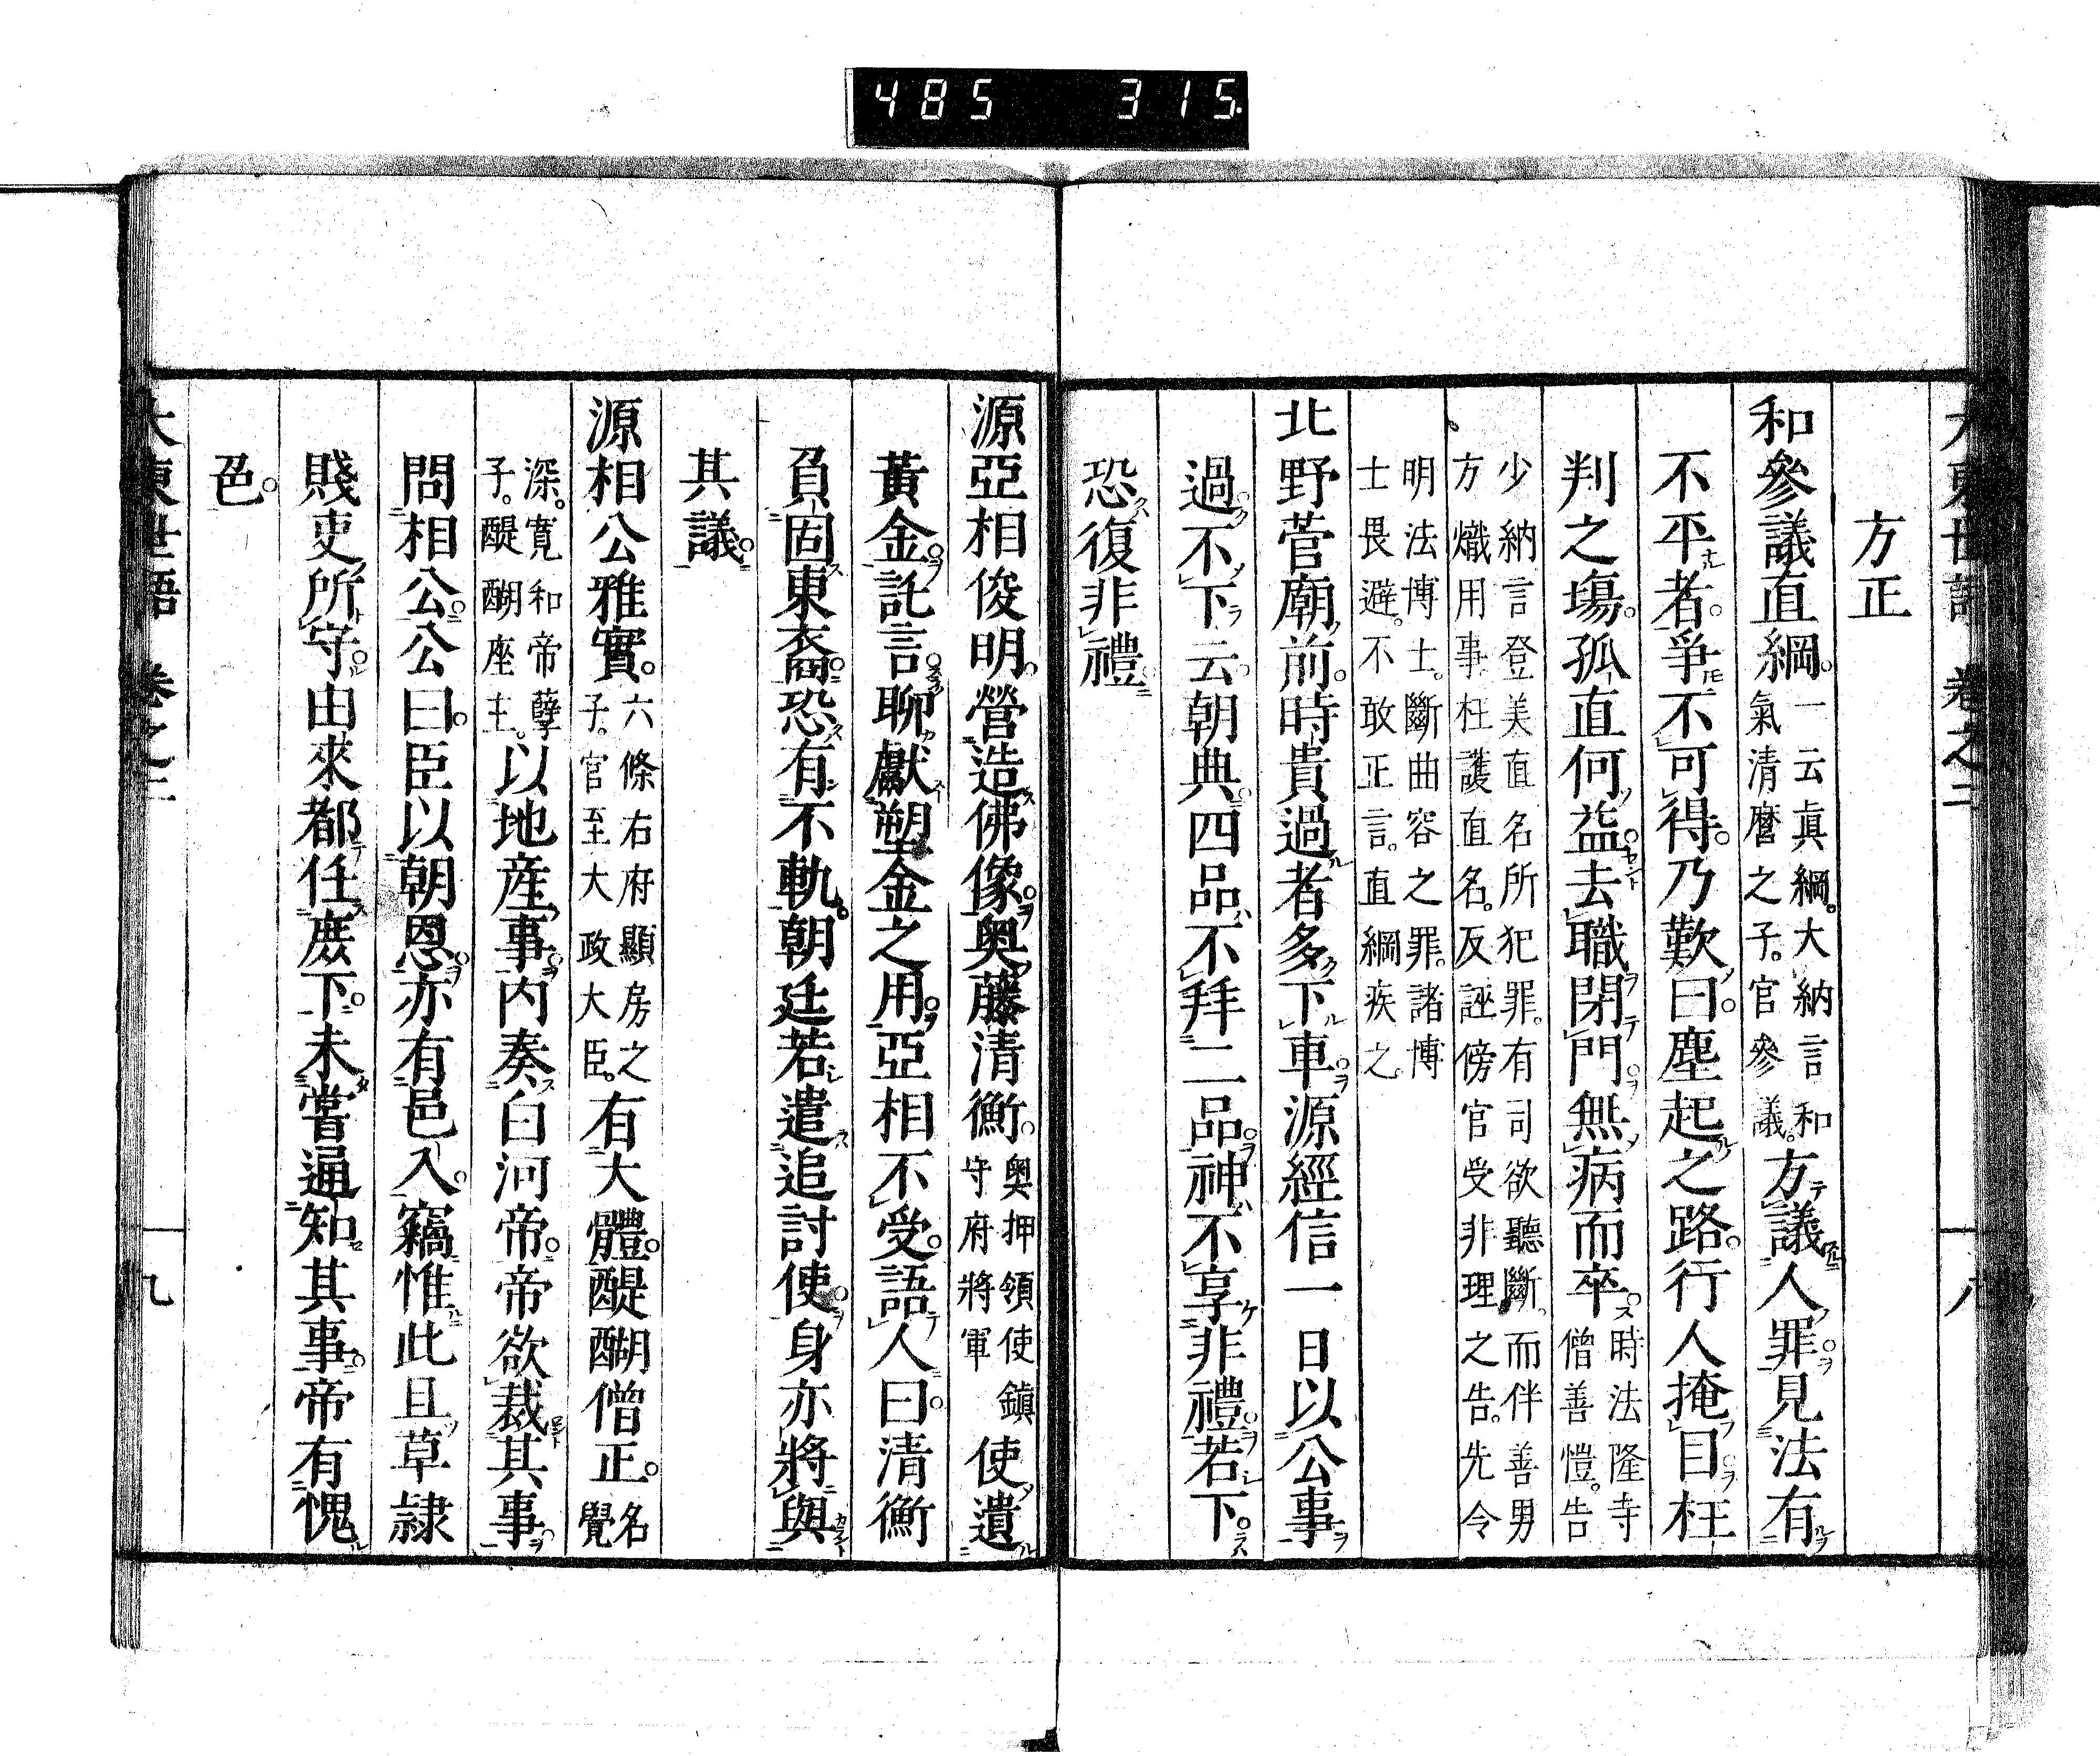 485 315
大東世語 卷之二 八
方正
和參議直綱。一云眞綱。大納言和氣清麿之子。官參議。方議人罪見法有
不平者。爭不可得。乃歎曰。塵起之路。行人掩目枉
判之塲。孤直何益去職閉門無病而卒。時法隆寺僧善愷。告
少納言登美直名所犯罪。有司欲聽斷。而伴善男方熾用事。枉護直名。反誣傍官受非理之告。先令
明法博士。斷曲容之罪。諸博士畏避。不敢正言。直綱疾之。
北野菅廟前。時貴過者多下車源經信一日以公事
過不下云朝典四品不拜二品神不享非禮若下
恐復非禮
源亞相俊明。營造佛像。奥藤清衡。奥押領使鎭守府將軍使遺
黃金託言聊獻塑金之用。亞相不受。語人曰。清衡
負固東裔。恐有不軌。朝廷若遣追討使身亦將與
其議。
源相公雅實。六條右府顯房之子。官至大政大臣。有大體。醍醐僧正。名覺
深。寬和帝孽子。醍醐座主。以地産事內奏白河帝。帝欲裁其事
問相公。公曰。臣以朝恩亦有邑入。竊惟此且草隷
賤吏所守。由來都任麾下。未嘗遍知其事。帝有愧
色。
大東世語 卷之二 九